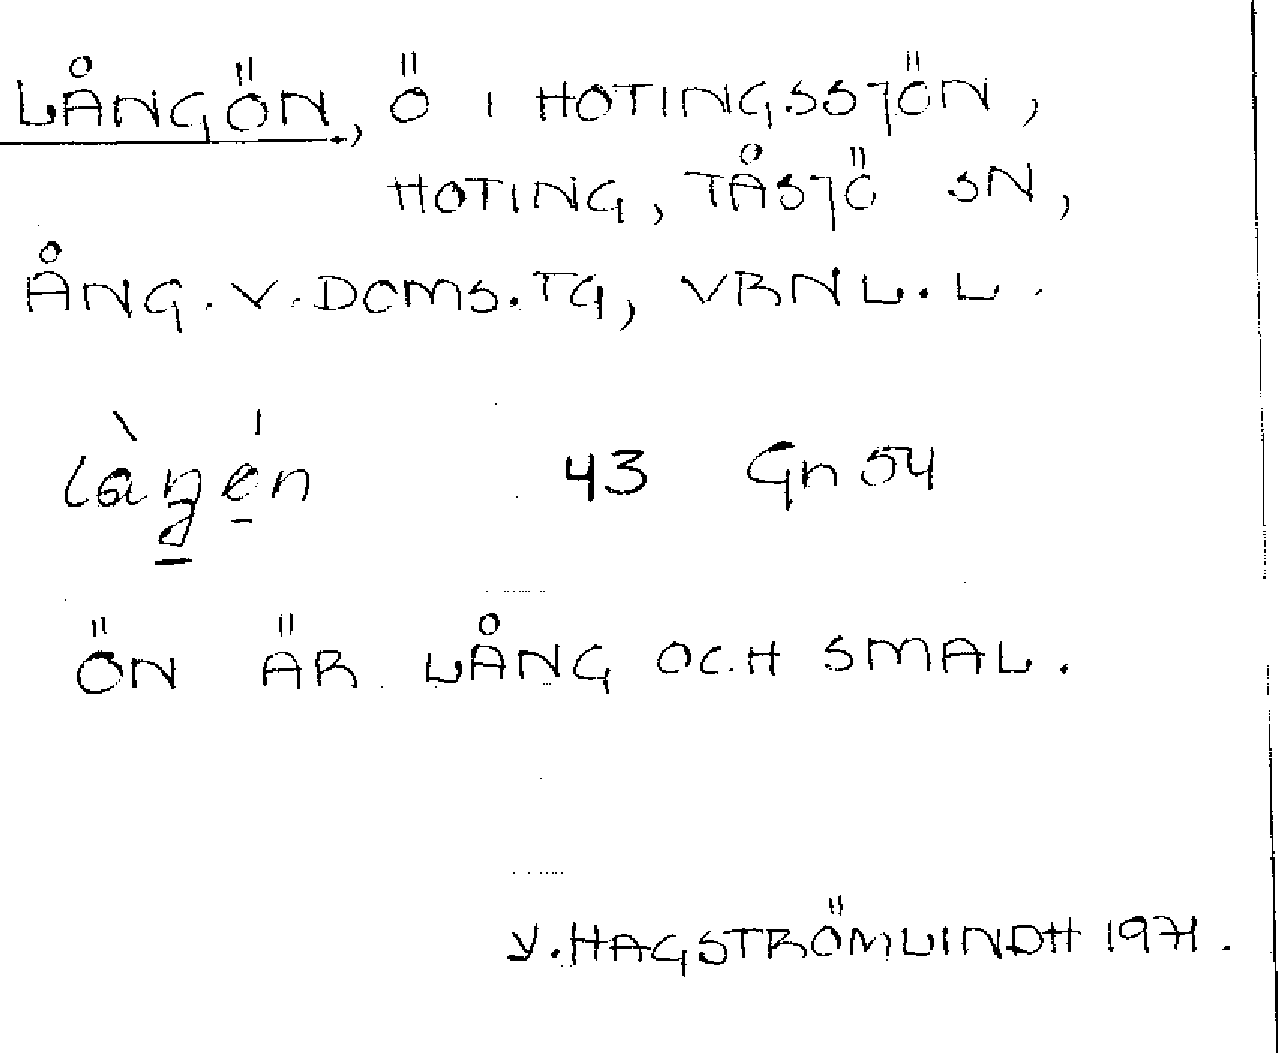 LÅNGÖN, Ö I HOTINGSSJÖN,
HOTING, TÅSJÖ SN,
ÅNG. V. DOMS. TG, VRNL. L.
43 Gn 54
ÖN ÄR LÅNG OCH SMAL.
Y. HAGSTRÖMLINDH 1971.